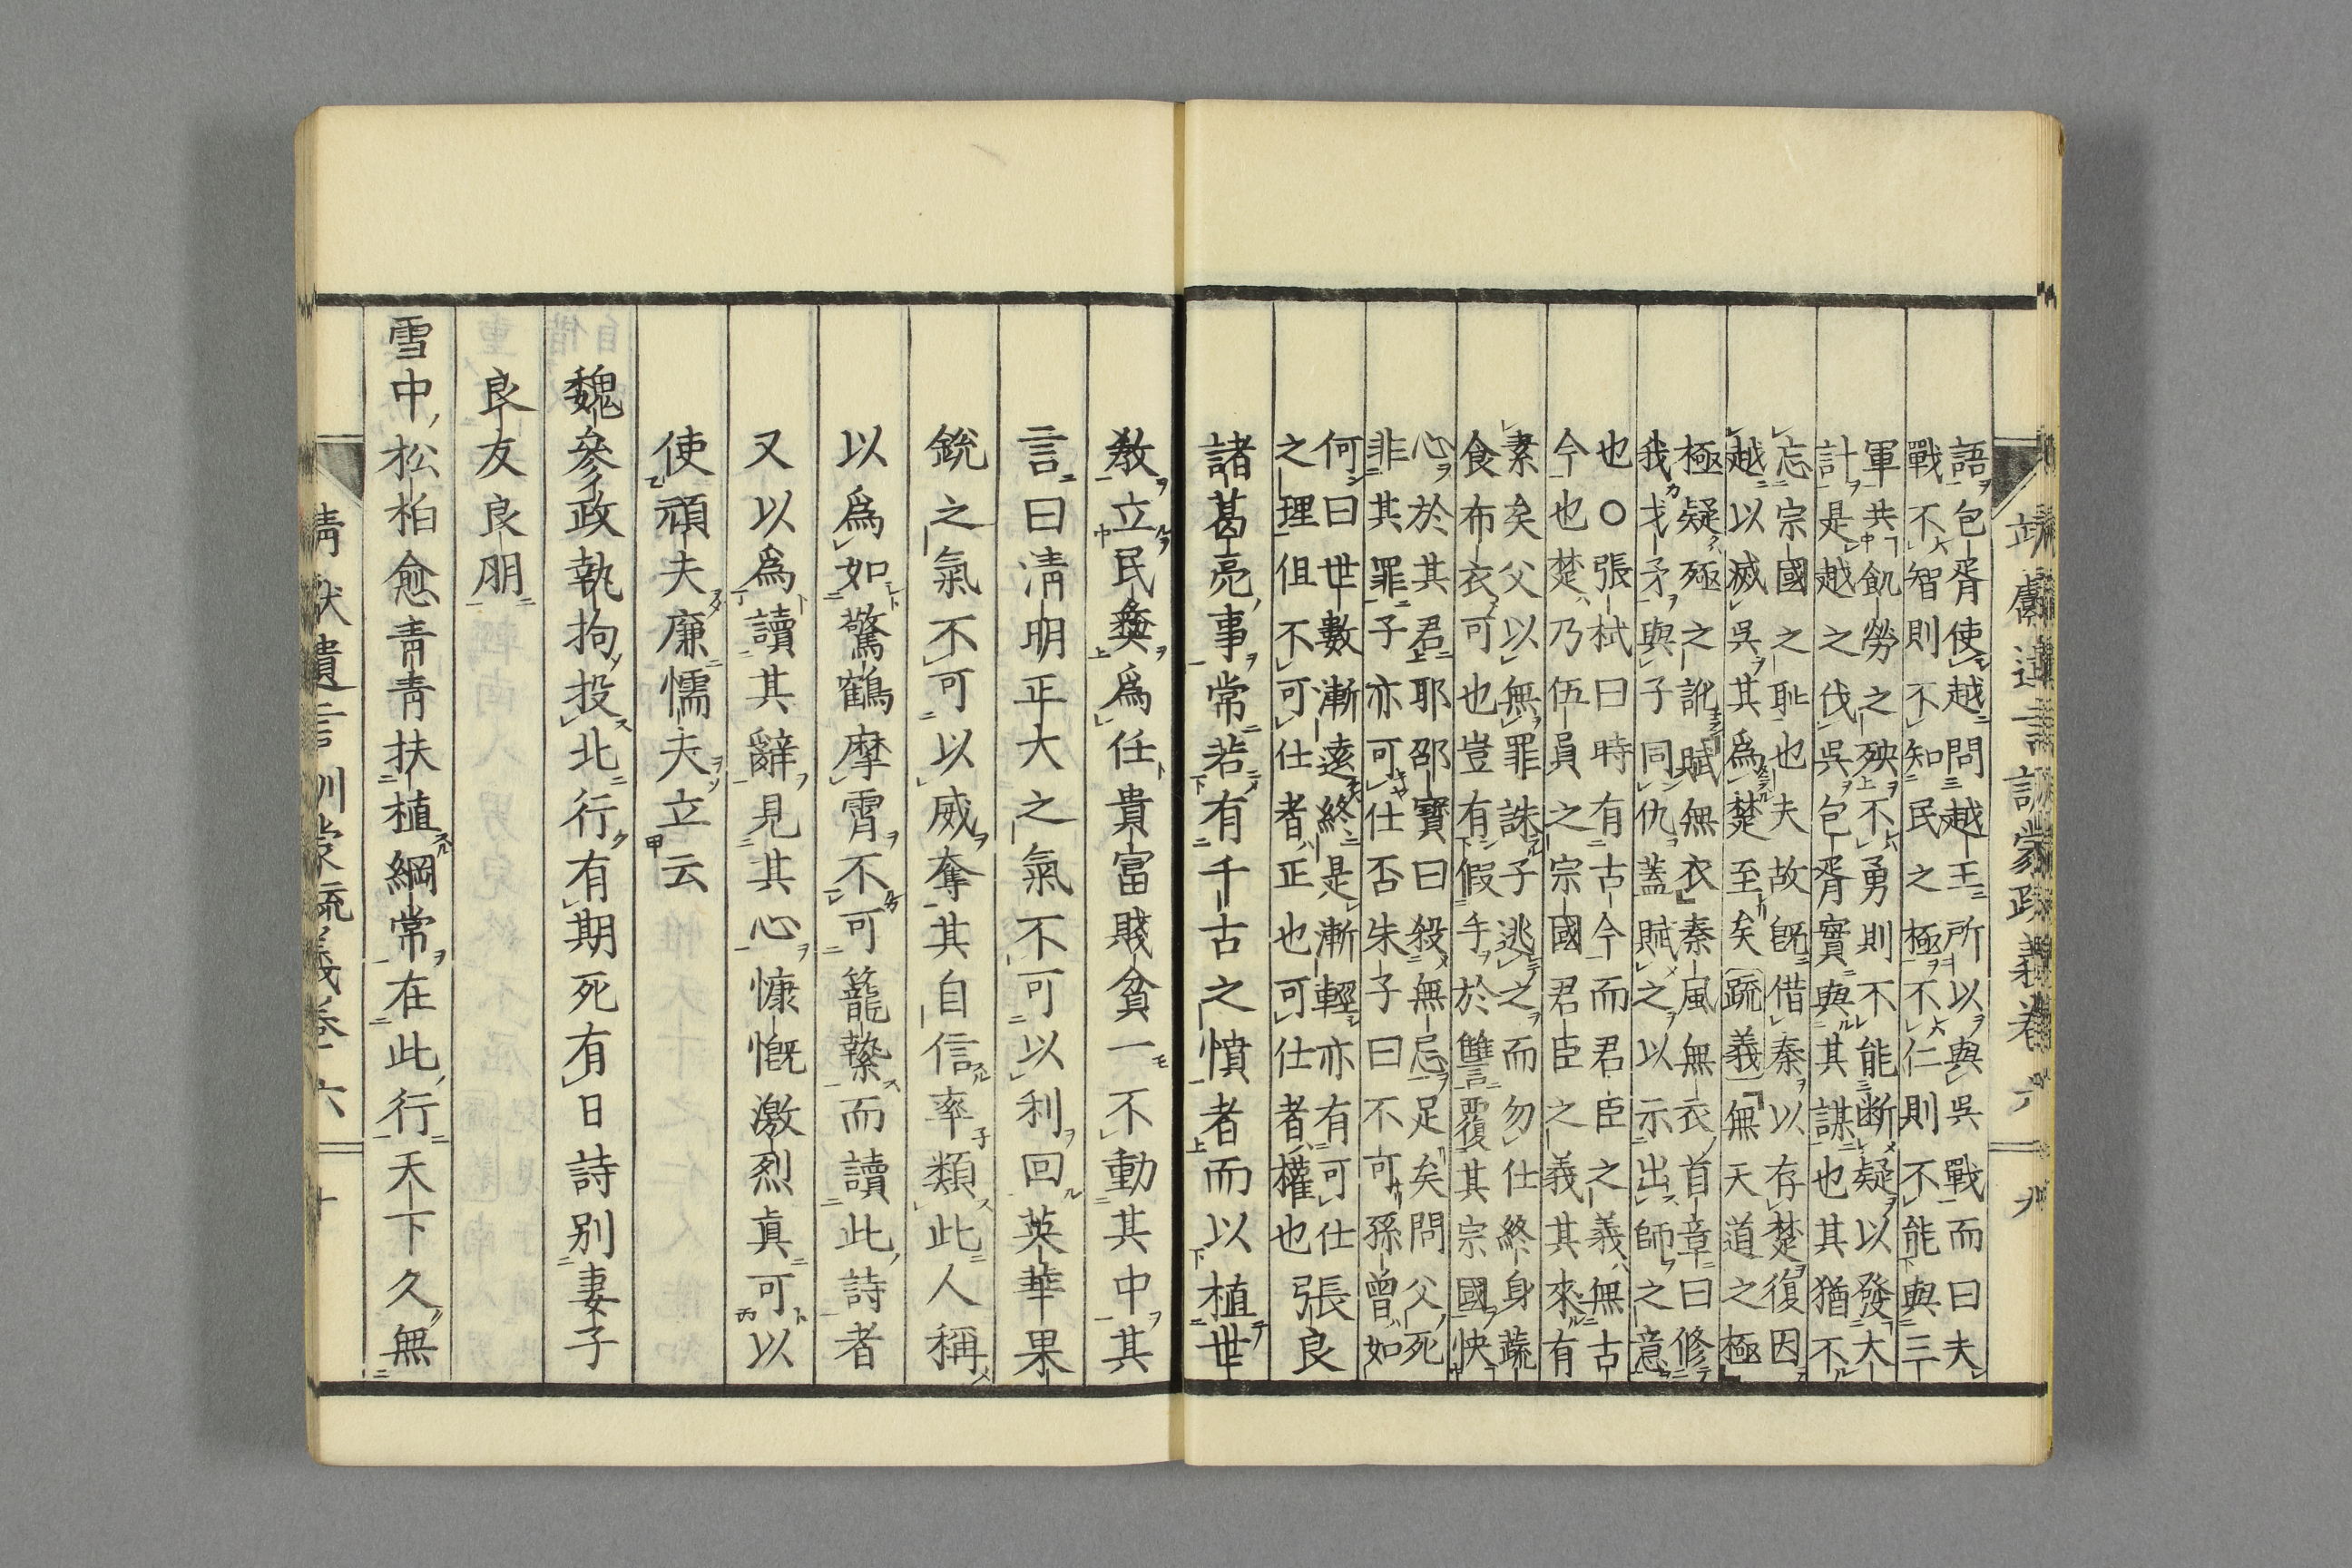 靖獻遺言訓蒙疏義卷六 九
語包胥使越問越王所以與吳戰而曰夫
戰不智則不知民之極不仁則不能與三
軍共飢勞之殃不勇則不能斷疑以發大
計是越之伐吳包胥實與其謀也其猶不
忘宗國之耻也夫故既借秦以存楚復因
越以滅吳其爲楚至矣疏義無天道之極
極疑殛之訛賦無衣秦風無衣首章曰修
我戈矛與子同仇蓋賦之以示出師之意
也○張栻曰時有古今而君臣之義無古
今也楚乃伍員之宗國君臣之義其來有
素矣父以無罪誅子逃之而勿仕終身蔬
食布衣可也豈有假手於讐覆其宗國快
心於其君耶邵寶曰殺無忌足矣問父死
非其罪子亦可仕否朱子曰不可孫曾如
何曰世數漸遠終是漸輕亦有可仕
之理但不可仕者正也可仕者權也
張良
諸葛亮事常若有千古之憤者而以植世
敎立民彝爲任貴富賤貧一不動其中其
言曰淸明正大之氣不可以利回英華果
銳之氣不可以威奪其自信率類此人稱
以爲如驚鶴摩霄不可籠縶而讀此詩者
又以爲讀其辭見其心慷慨激烈眞可以
使頑夫廉懦夫立云
魏參政執拘投北行有期死有日詩別妻子
良友良朋
雪中松柏愈靑靑扶植綱常在此行天下久無
靖獻遺言訓蒙疏義卷六 十